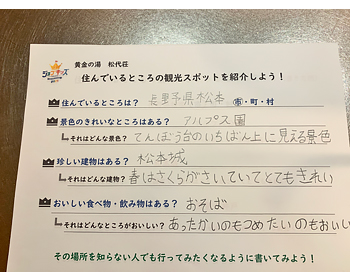 黄金の湯 松代荘
住んでいるところの観光スポットを紹介しよう！
住んでいるところは？ 長野県松本 市・町・村
景色のきれいなところはある？ アルプス園
それはどんな景色？ てんぼう台のいちばん上に見える景色
珍しい建物はある？ 松本城
それはどんな建物？ 春はさくらがさいていてとてもきれい
おいしい食べ物・飲み物はある？ おそば
それはどんなところがおいしい？ あったかいのもつめたいのもおいし
その場所を知らない人でも行ってみたくなるように書いてみよう！